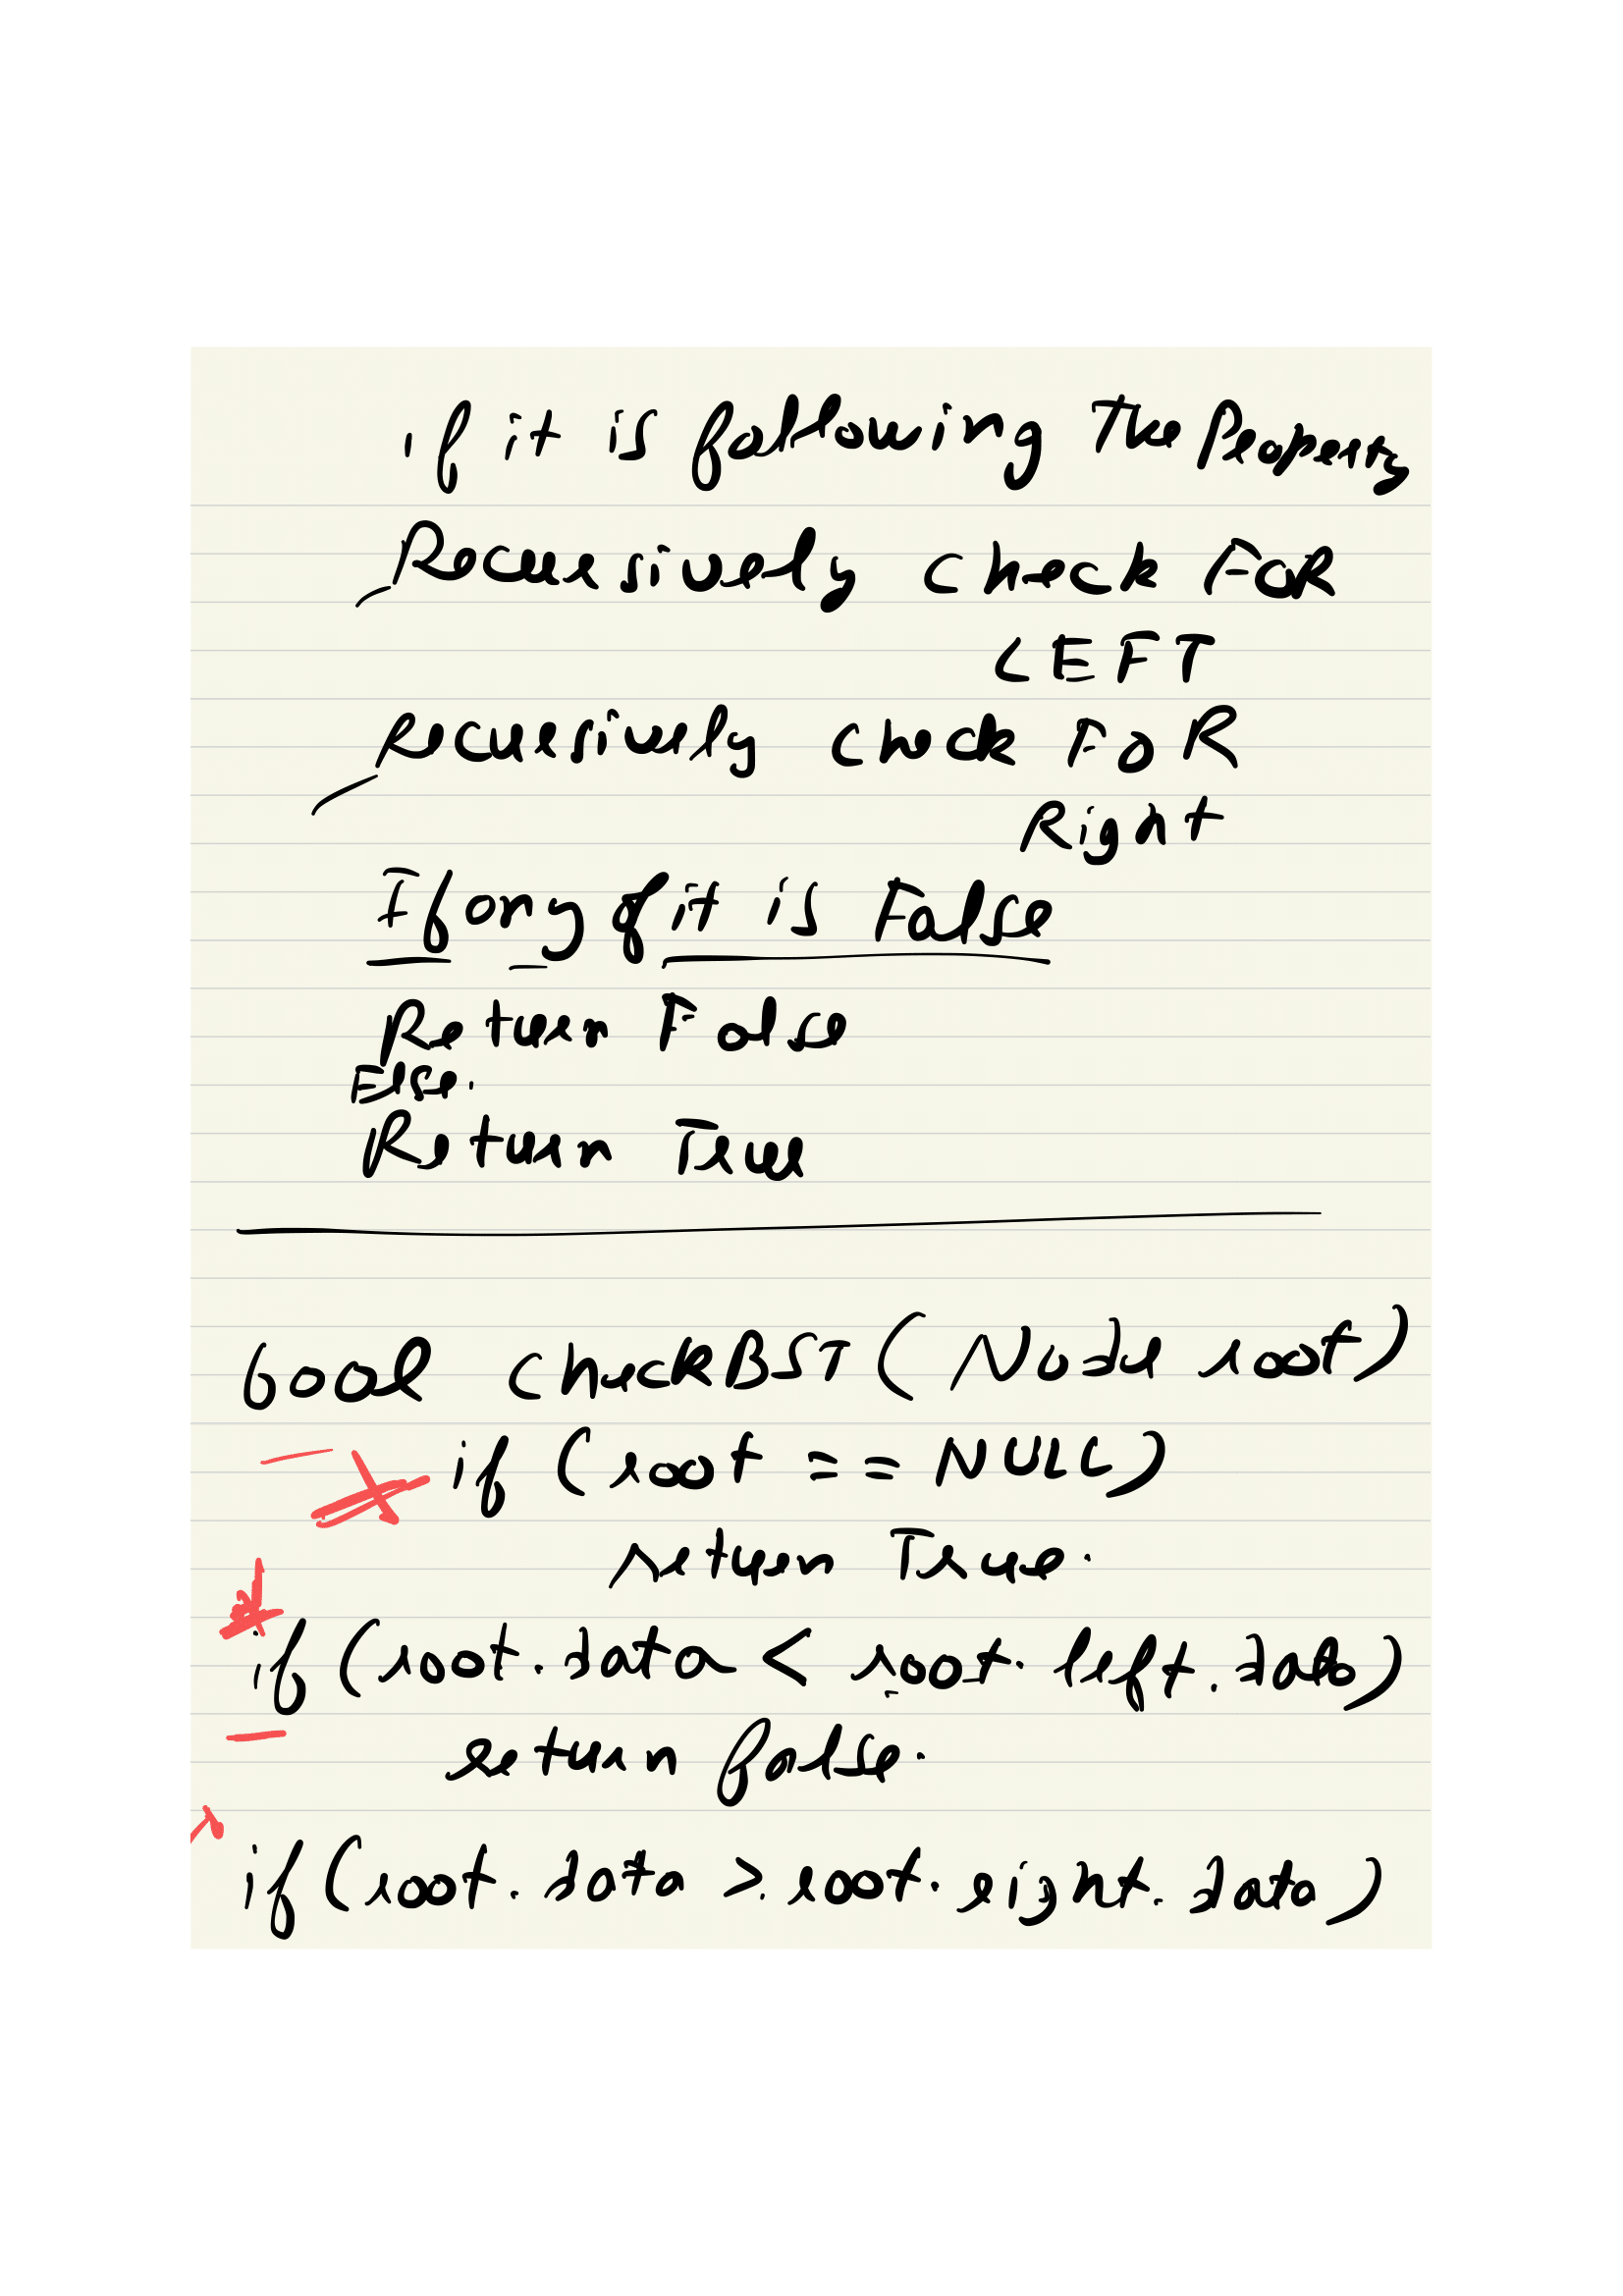 if it is following The Property
Recursively check FOR
LEFT
Recursively check FOR
Right
If any of it is False
Return False
Else.
Return True
bool checkBST (Node root)
if (root == NULL)
return True.
if (root.data < root.left.data)
return false.
if (root.data > root.right.data)